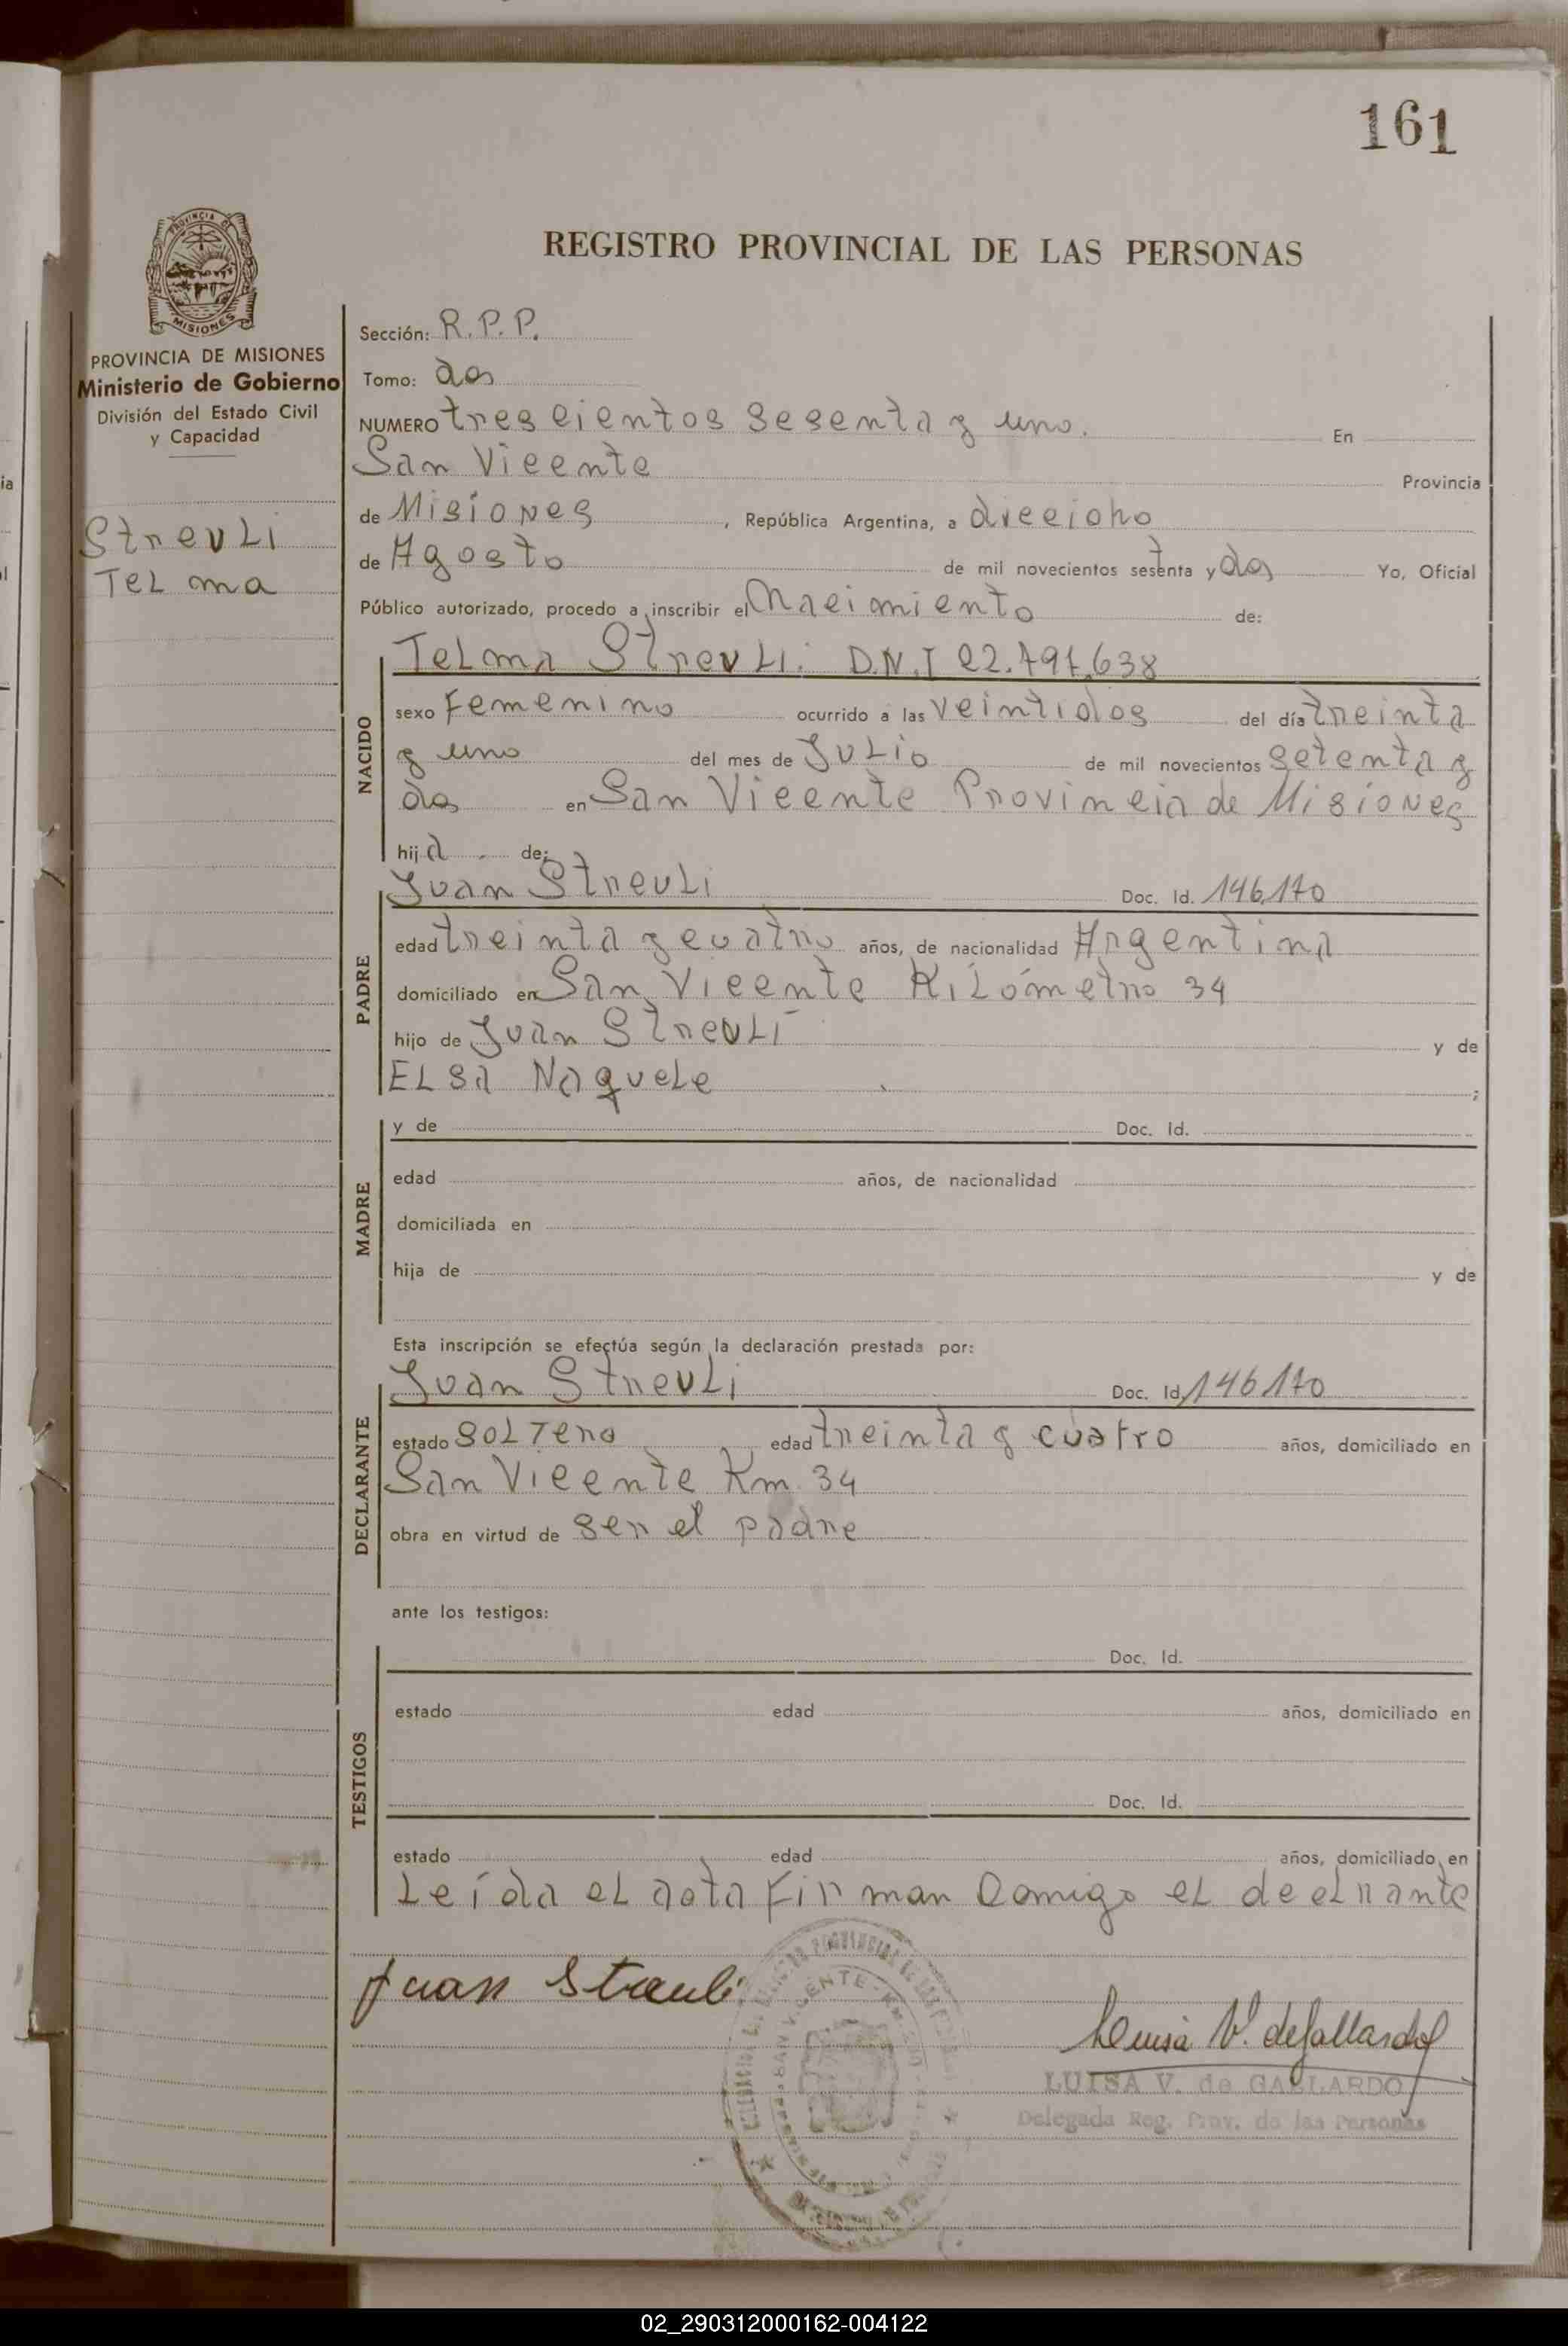 161
REGISTRO PROVINCIAL DE LAS PERSONAS
PROVINCIA DE MISIONES
Ministerio de Gobierno
División del Estado Civil
y Capacidad
Streuli
Telma
Sección: R.P.P.
Tomo: dos
NUMERO trescientos sesenta y uno. En
San Vicente Provincia
de Misiones , República Argentina, a diecioho
de Agosto de mil novecientos sesenta y dos Yo, Oficial
Público autorizado, procedo a inscribir el Nacimiento de:
NACIDO
Telma Streuli. D.N.I 22.491.638
sexo Femenino ocurrido a las veintidos del día treinta
y uno del mes de Julio de mil novecientos setenta y
dos en San Vicente Provincia de Misiones
hija de:
PADRE
Juan Streuli Doc. Id. 146.170
edad treinta y cuatro años, de nacionalidad Argentina
domiciliado en San Vicente Kilómetro 34
hijo de Juan Streuli y de
Elsa Naquele ;
MADRE
y de Doc. Id.
edad años, de nacionalidad
domiciliada en
hija de y de
Esta inscripción se efectúa según la declaración prestada por:
DECLARANTE
Juan Streuli Doc. Id. 146170
estado Soltero edad treinta y cuatro años, domiciliado en
San Vicente Km. 34
obra en virtud de ser el padre
ante los testigos:
TESTIGOS
Doc. Id.
estado edad años, domiciliado en
Doc. Id.
estado edad años, domiciliado en
Leída el acta Firman Comigo el declrante
Juan Streuli
Luisa V. de Gallardo
LUISA V. de GALLARDO
Delegada Reg. Prov. de las Personas
02_290312000162-004122